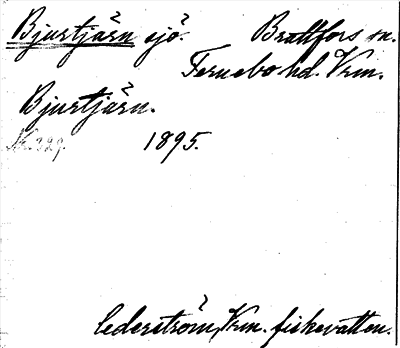 Bjurtjärn sjö. Brattfors sn.
Fernebo hd. Vrm.
Bjurtjärn.
1895.
Cederström, Vrm. fiskevatten.